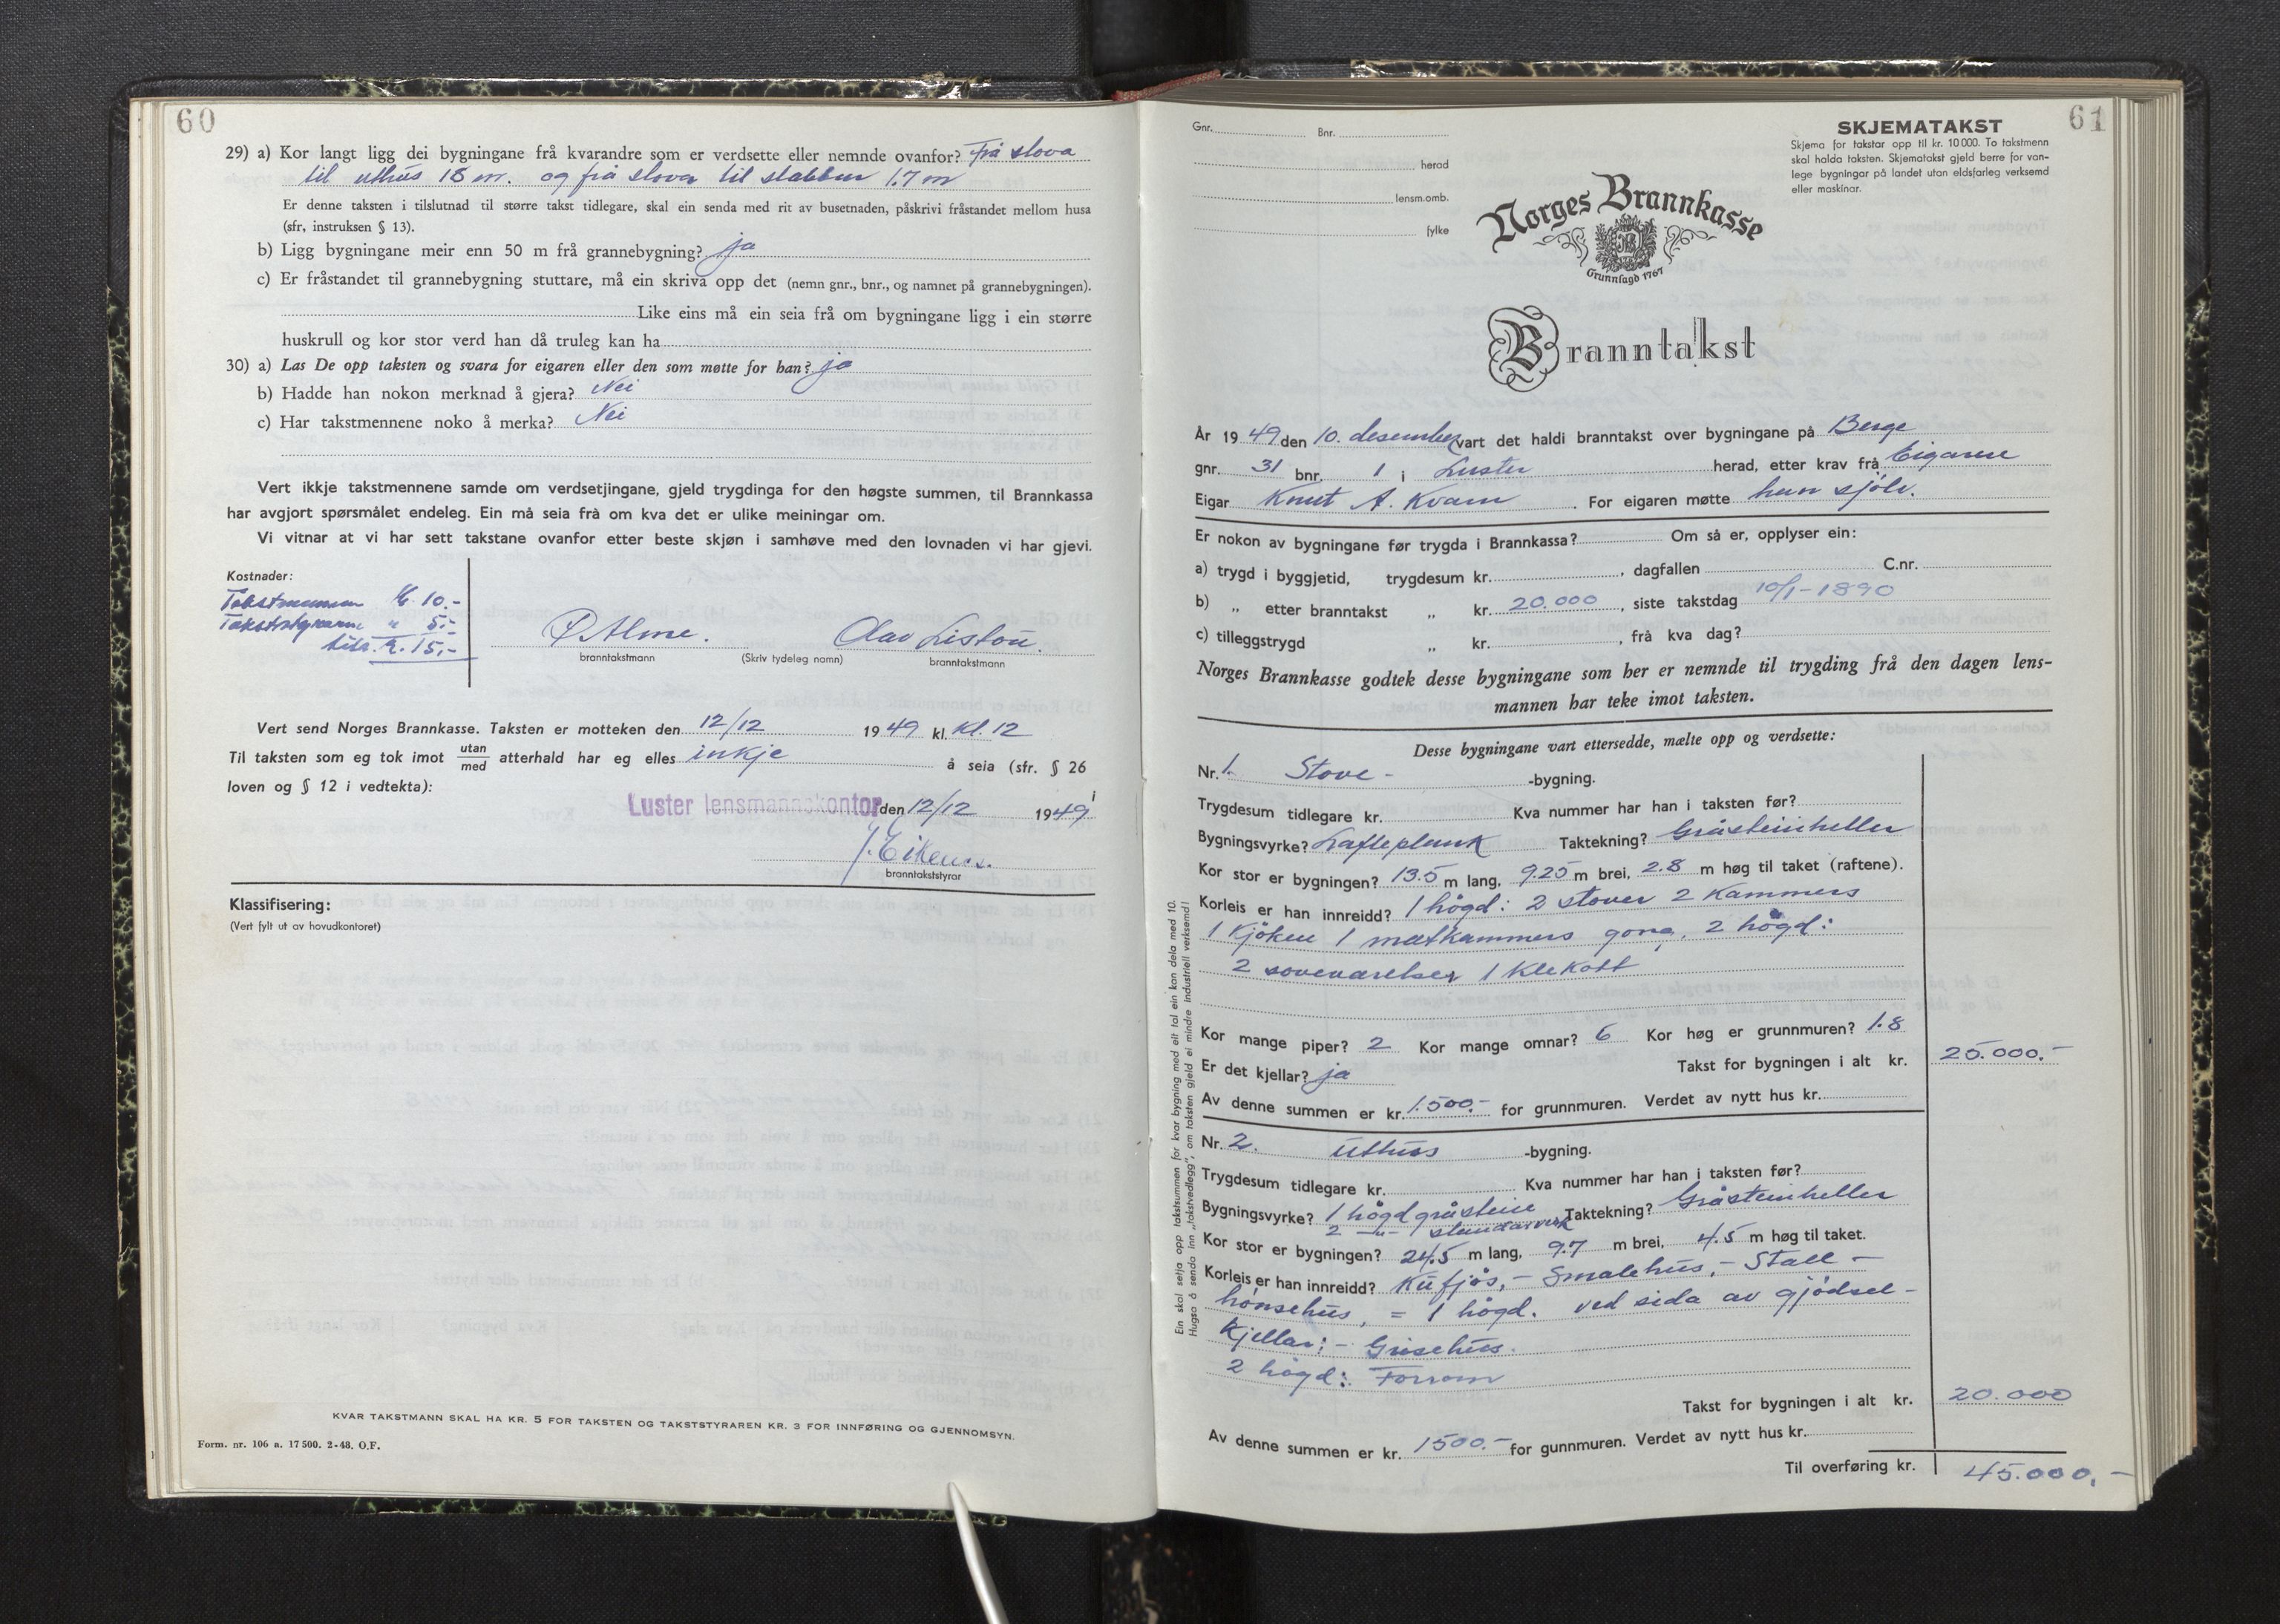 60
29) a) Kor langt ligg dei bygningane frå kvarandre som er verdsette eller nemnde ovanfor? Frå stova
til uthus 18 m. og frå stova til stabbur 17 m
Er denne taksten i tilslutnad til større takst tidlegare, skal ein senda med rit av busetnaden, påskrivi fråstandet mellom husa
(sfr, instruksen § 13).
b) Ligg bygningane meir enn 50 m frå grannebygning? ja
c) Er fråstandet til grannebygning stuttare, må ein skriva opp det (nemn gnr., bnr., og namnet på grannebygningen).
Like eins må ein seia frå om bygningane ligg i ein større
huskrull og kor stor verd han då truleg kan ha
30) a) Las De opp taksten og svara for eigaren eller den som møtte for han? ja
b) Hadde han nokon merknad å gjera? Nei
c) Har takstmennene noko å merka? Nei
Vert ikkje takstmennene samde om verdsetjingane, gjeld trygdinga for den høgste summen, til Brannkassa
har avgjort spørsmålet endeleg. Ein må seia frå om kva det er ulike meiningar om.
Vi vitnar at vi har sett takstane ovanfor etter beste skjøn i samhøve med den lovnaden vi har gjevi.
Kostnader:
Takstmennene kr. 10.-
Takststyrarne " 5.-
kr. 15,-
P. Alme. Olav Liston.
branntakstmann (Skriv tydeleg namn) branntakstmann
Vert send Norges Brannkasse. Taksten er motteken den 12/12 1949 kl. Kl. 12
Til taksten som eg tok imot utan/med atterhald har eg elles inkje å seia (sfr. § 26 i
loven og § 12 i vedtekta):
Luster lensmannskontor den 12/12 1949
J. Eikenes.
branntakststyrar
Klassifisering:
(Vert fylt ut av hovudkontoret)
KVAR TAKSTMANN SKAL HA KR. 5 FOR TAKSTEN OG TAKSTSTYRAREN KR. 3 FOR INNFØRING OG GJENNOMSYN.
Form. nr. 106 a. 17500. 2-48. O.F.
61
Gnr. Bnr.
herad
lensm.omb.
fylke
SKJEMATAKST
Skjema for takstar opp til kr. 10 000. To takstmenn
skal halda taksten. Skjematakst gjeld berre for van-
lege bygningar på landet utan eldsfarleg verksemd
eller maskinar.
Norges Brannkasse
Grunnlagd 1767
Branntakst
År 1949 den 10. desember vart det haldi branntakst over bygningane på Berge
gnr. 31 bnr. 1 i Luster herad, etter krav frå Eigaren
Eigar Knut A. Kvam. For eigaren møtte han sjölv.
Er nokon av bygningane før trygda i Brannkassa? Om så er, opplyser ein:
a) trygd i byggjetid, trygdesum kr. , dagfallen C.nr.
b) „ etter branntakst „ kr. 20.000, siste takstdag 10/1-1890
c) tilleggstrygd „ kr. , frå kva dag?
Norges Brannkasse godtek desse bygningane som her er nemnde til trygding frå den dagen lens-
mannen har teke imot taksten.
Desse bygningane vart ettersedde, mælte opp og verdsette:
Nr. 1. Stove- -bygning.
Trygdesum tidlegare kr. Kva nummer har han i taksten før?
Bygningsvyrke? Lafteplank Taktekning? Gråsteinheller
Kor stor er bygningen? 13.5 m lang, 9.25 m brei, 2.8 m høg til taket (raftene).
Korleis er han innreidd? 1 högd: 2 stover 2 kammers
1 kjöken 1 matkammers gong, 2 högd:
2 soveværelser 1 klekott
Kor mange piper? 2 Kor mange omnar? 6 Kor høg er grunnmuren? 1.8
Er det kjellar? ja Takst for bygningen i alt kr. 25.000.-
Av denne summen er kr. 1.500.- for grunnmuren. Verdet av nytt hus kr.
Nr. 2. Uthus -bygning.
Trygdesum tidlegare kr. Kva nummer har han i taksten før?
Bygningsvyrke? 1 högd gråstein Taktekning? Gråsteinheller
2 -"- standarverk
Kor stor er bygningen? 24.5 m lang, 9.7 m brei, 4.5 m høg til taket.
Korleis er han innreidd? Kufjös, - Smalehus, - Stall -
hönsehus, = 1 högd. ved sida av gjödsel-
kjellar; - Grisehus.
2 högd: Forrom
Takst for bygningen i alt kr. 20.000
Av denne summen er kr. 1500.- for gunnmuren. Verdet av nytt hus kr.
Til overføring kr. 45.000.-
Ein skal setja opp takstsummen for kvar bygning med eit tal ein kan dela med 10.
Hugsa å senda inn „takstvedlegg", om taksten gjeld ei mindre industriell verksemd!